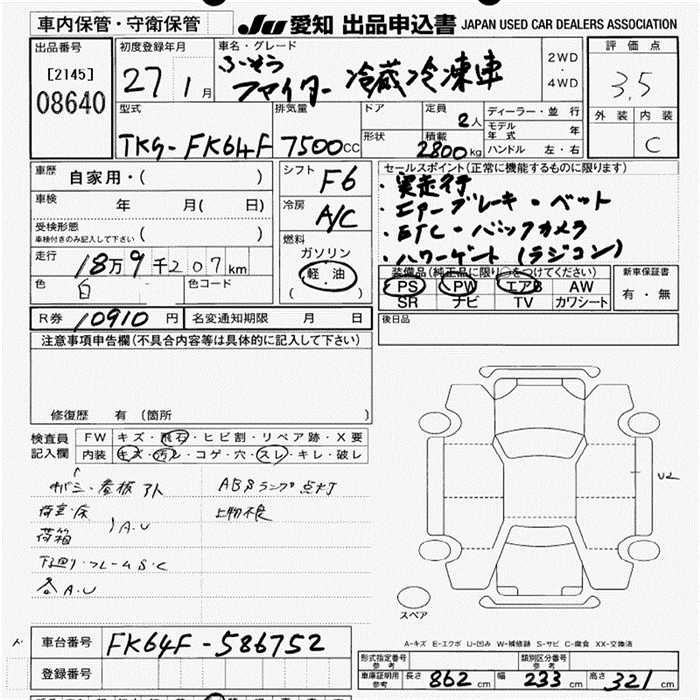 車内保管・守衛保管
JU 愛知 出品申込書 JAPAN USED CAR DEALERS ASSOCIATION
出品番号
[2145]
08640
初度登録年月
27 1月
車名・グレード
ふそう
ファイター 冷蔵冷凍車
2WD
・
4WD
評価点
3.5
外装 内装
C
型式
TKG-FK64F
排気量
7500CC
ドア
形状
定員
2人
積載
2800kg
ディーラー・並行
モデル年式 年
ハンドル 左・右
車歴
自家用・( )
車検 年 月( 日)
受検形態
車検付きのみ記入して下さい ( )
走行
18万9千207km
色
白
色コード
シフト
F6
冷房
A/C
燃料
ガソリン
軽油
( )
セールスポイント(正常に機能するものに限ります)
・実走行
・エアーブレーキ・ベット
・ETC・バックカメラ
・パワーゲート(ラジコン)
装備品(純正品に限り○をつけてください)
PS PW エアB AW
SR ナビ TV カワシート
新車保証書
有・無
R券 10910円
名変通知期限 月 日
後日品
注意事項申告欄(不具合内容等は具体的に記入して下さい)
修復歴 有(箇所 )
検査員記入欄
FW キズ・飛石・ヒビ割・リペア跡・X要
内装 キズ・汚レ・コゲ・穴・スレ・キレ・破レ
キバミ・看板アト
ABSランプ点灯
荷室・床
荷箱
A.U
上物不良
下廻り・フレームS・C
各A.U
U2
スペア
A-キズ E-エクボ U-凹み W-補修跡 S-サビ C-腐食 XX-交換済
車台番号
FK64F-586752
登録番号
形式指定番号
参考
類別区分番号
参考
車庫証明用
参考
長さ 862cm 幅 233cm 高さ 321cm